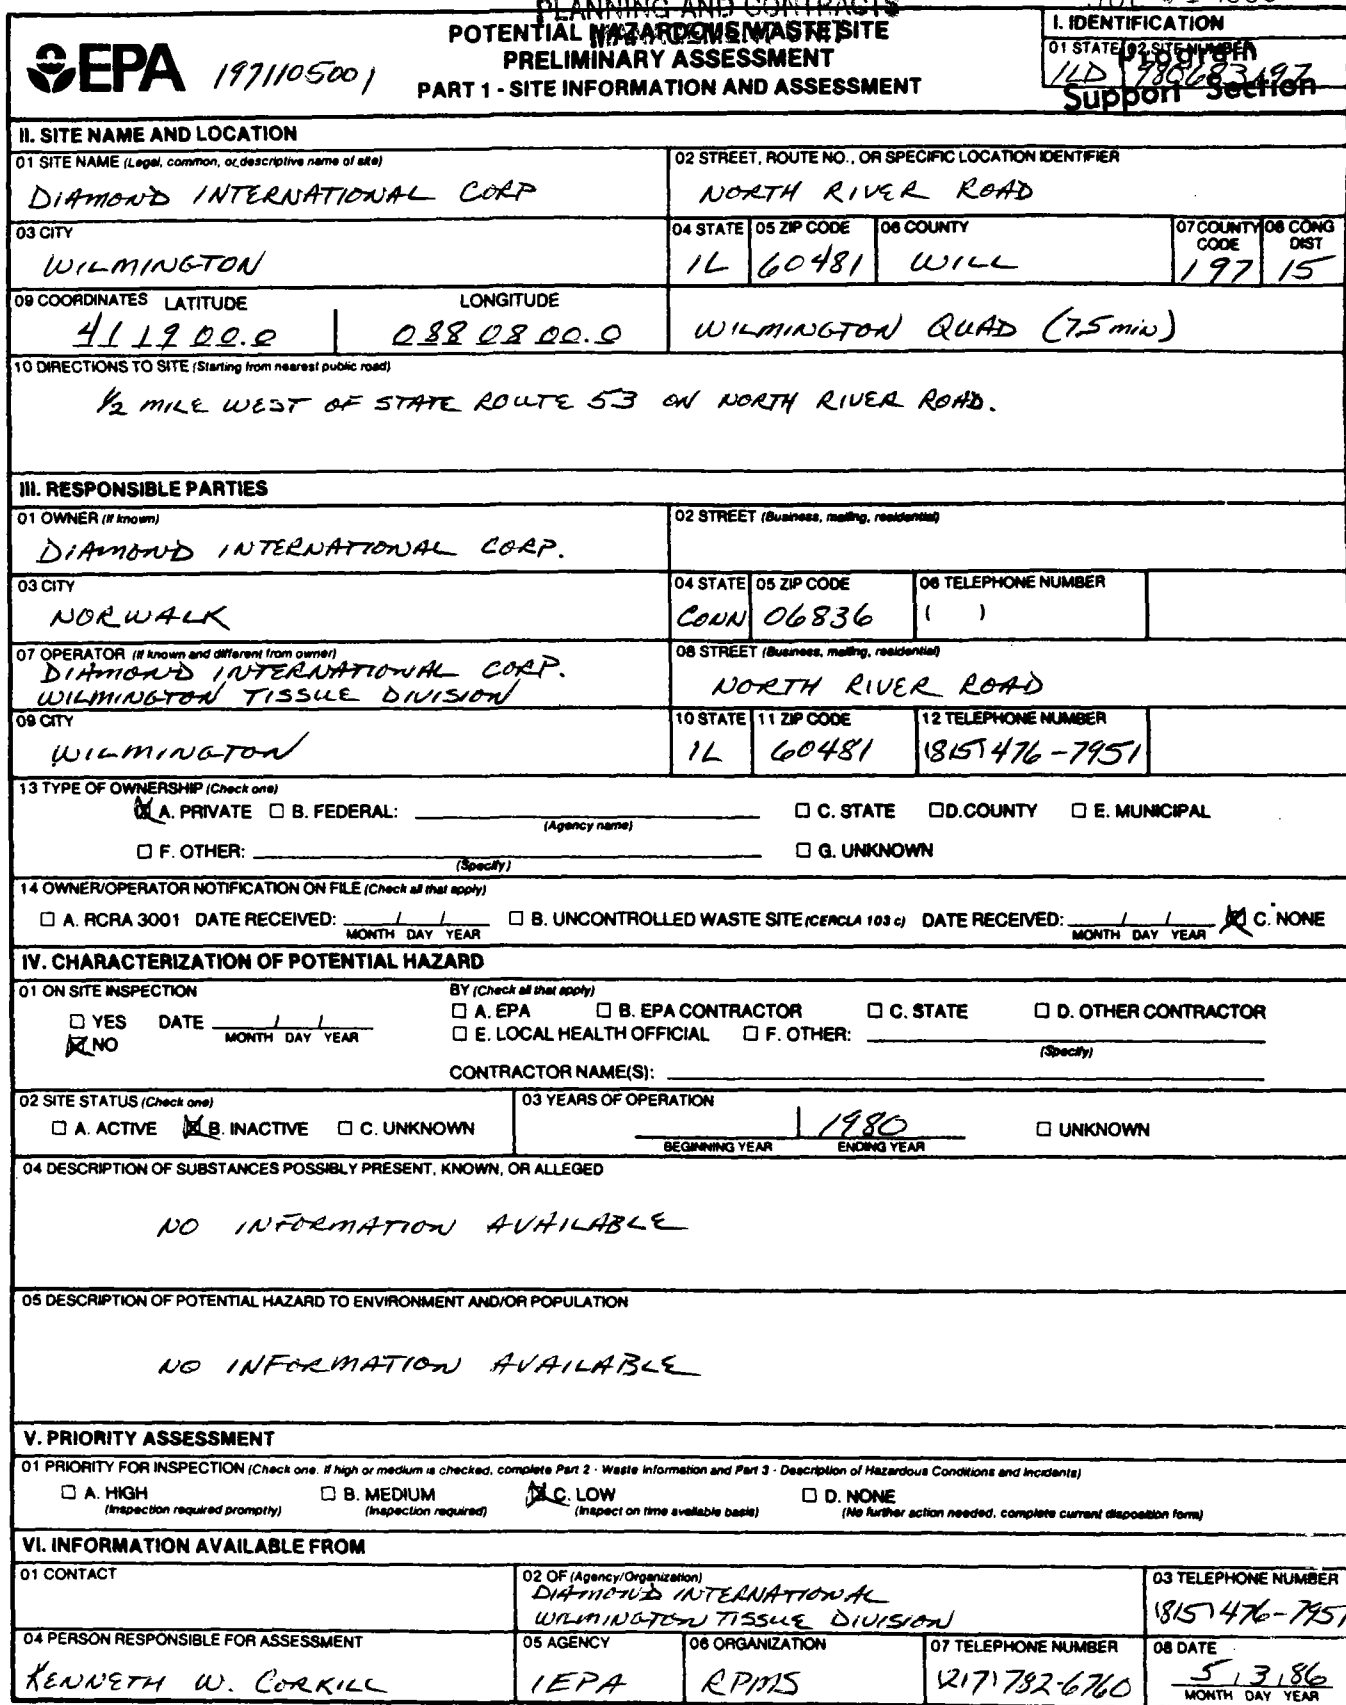 PLANNING AND CONTRACTS
POTENTIAL HAZARDOUS WASTE SITE
PRELIMINARY ASSESSMENT
PART 1 - SITE INFORMATION AND ASSESSMENT
EPA 1971105001
I. IDENTIFICATION
01 STATE 02 SITE NUMBER
ILD 980683197
Program
Support Section
II. SITE NAME AND LOCATION
01 SITE NAME (Legal, common, or descriptive name of site)
DIAMOND INTERNATIONAL CORP
02 STREET, ROUTE NO., OR SPECIFIC LOCATION IDENTIFIER
NORTH RIVER ROAD
03 CITY
WILMINGTON
04 STATE 05 ZIP CODE 06 COUNTY 07 COUNTY CODE 08 CONG DIST
IL 60481 WILL 197 15
09 COORDINATES LATITUDE LONGITUDE
41 19 00.0 088 08 00.0 WILMINGTON QUAD (7.5 min)
10 DIRECTIONS TO SITE (Starting from nearest public road)
1/2 MILE WEST OF STATE ROUTE 53 ON NORTH RIVER ROAD.
III. RESPONSIBLE PARTIES
01 OWNER (If known)
DIAMOND INTERNATIONAL CORP.
02 STREET (Business, mailing, residential)
03 CITY
NORWALK
04 STATE 05 ZIP CODE 06 TELEPHONE NUMBER
CONN 06836 ( )
07 OPERATOR (If known and different from owner)
DIAMOND INTERNATIONAL CORP.
WILMINGTON TISSUE DIVISION
08 STREET (Business, mailing, residential)
NORTH RIVER ROAD
09 CITY
WILMINGTON
10 STATE 11 ZIP CODE 12 TELEPHONE NUMBER
IL 60481 (815) 476-7951
13 TYPE OF OWNERSHIP (Check one)
☒ A. PRIVATE ☐ B. FEDERAL: ☐ C. STATE ☐ D. COUNTY ☐ E. MUNICIPAL
(Agency name)
☐ F. OTHER: ☐ G. UNKNOWN
(Specify)
14 OWNER/OPERATOR NOTIFICATION ON FILE (Check all that apply)
☐ A. RCRA 3001 DATE RECEIVED: / / ☐ B. UNCONTROLLED WASTE SITE (CERCLA 103 c) DATE RECEIVED: / / ☒ C. NONE
MONTH DAY YEAR MONTH DAY YEAR
IV. CHARACTERIZATION OF POTENTIAL HAZARD
01 ON SITE INSPECTION
☐ YES DATE / /
☒ NO MONTH DAY YEAR
BY (Check all that apply)
☐ A. EPA ☐ B. EPA CONTRACTOR ☐ C. STATE ☐ D. OTHER CONTRACTOR
☐ E. LOCAL HEALTH OFFICIAL ☐ F. OTHER:
(Specify)
CONTRACTOR NAME(S):
02 SITE STATUS (Check one)
☐ A. ACTIVE ☒ B. INACTIVE ☐ C. UNKNOWN
03 YEARS OF OPERATION
1980 ☐ UNKNOWN
BEGINNING YEAR ENDING YEAR
04 DESCRIPTION OF SUBSTANCES POSSIBLY PRESENT, KNOWN, OR ALLEGED
NO INFORMATION AVAILABLE
05 DESCRIPTION OF POTENTIAL HAZARD TO ENVIRONMENT AND/OR POPULATION
NO INFORMATION AVAILABLE
V. PRIORITY ASSESSMENT
01 PRIORITY FOR INSPECTION (Check one. If high or medium is checked, complete Part 2 - Waste Information and Part 3 - Description of Hazardous Conditions and Incidents)
☐ A. HIGH ☐ B. MEDIUM ☒ C. LOW ☐ D. NONE
(Inspection required promptly) (Inspection required) (Inspect on time available basis) (No further action needed, complete current disposition form)
VI. INFORMATION AVAILABLE FROM
01 CONTACT
02 OF (Agency/Organization)
DIAMOND INTERNATIONAL
WILMINGTON TISSUE DIVISION
03 TELEPHONE NUMBER
(815) 476-7951
04 PERSON RESPONSIBLE FOR ASSESSMENT
KENNETH W. CORKILL
05 AGENCY
IEPA
06 ORGANIZATION
RPMS
07 TELEPHONE NUMBER
(217) 782-6760
08 DATE
5/3/86
MONTH DAY YEAR